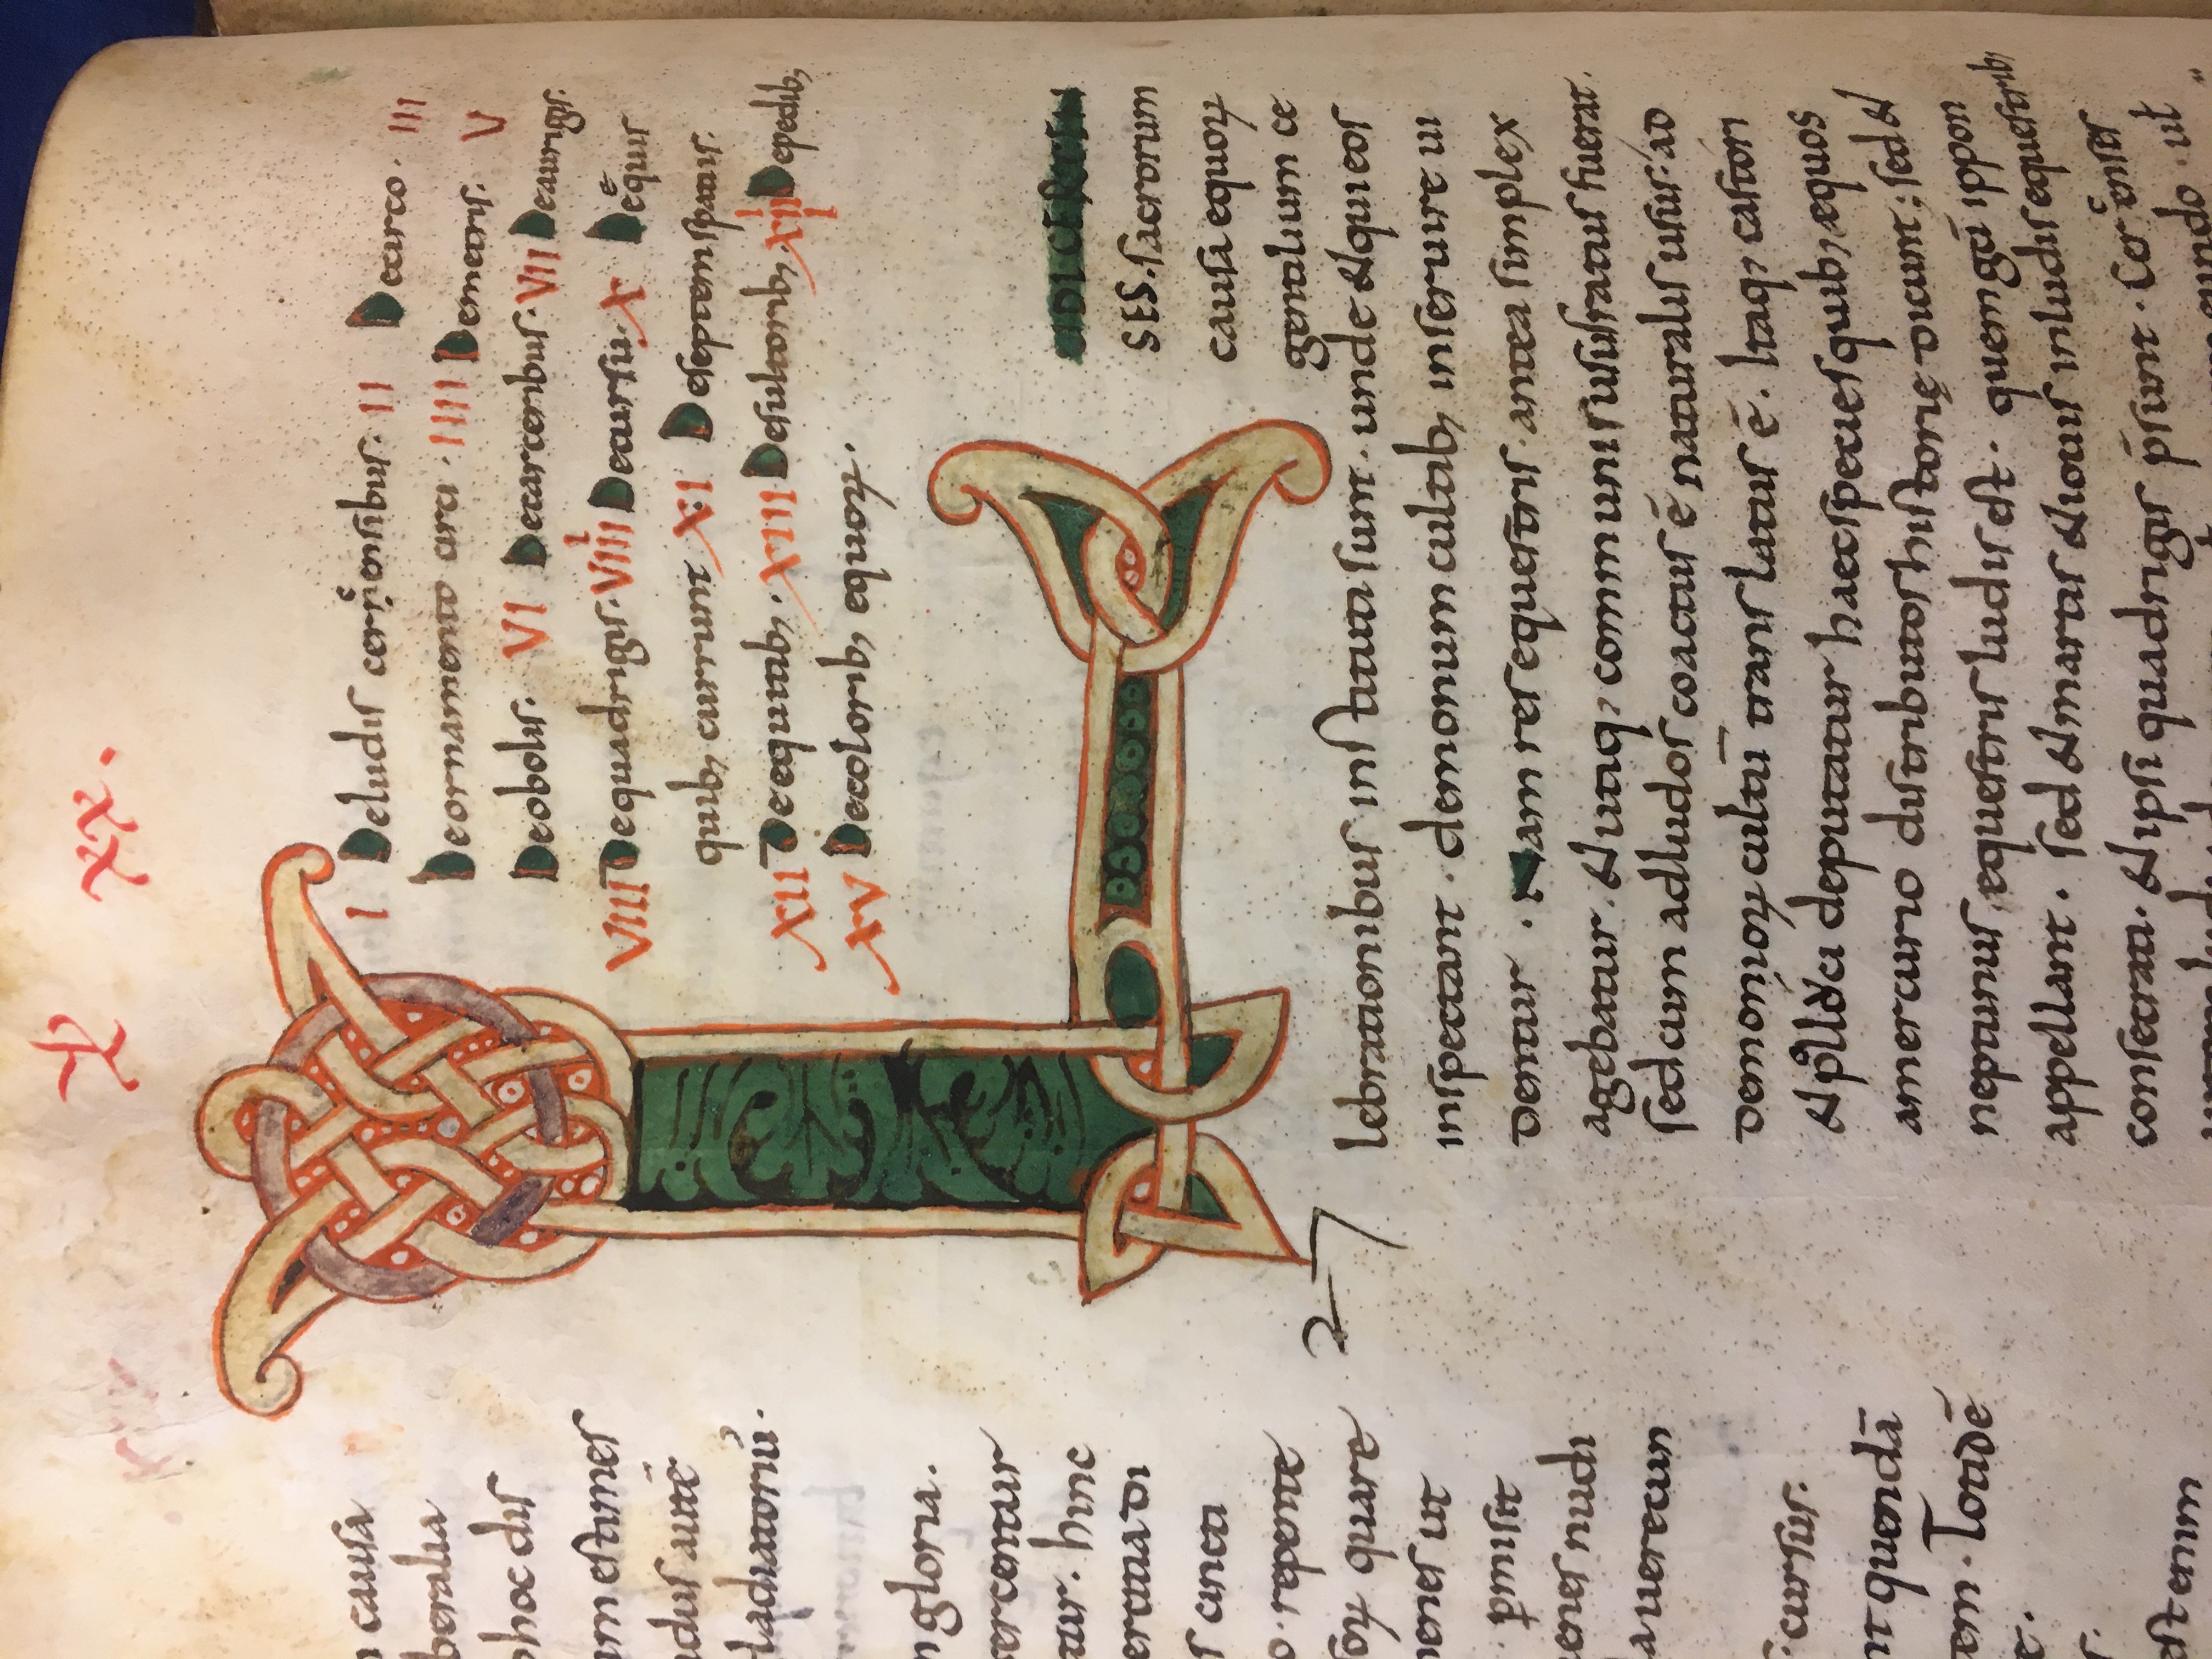 X XX.
I Deludis cerc̄ensibus. II Dearco. III
Deornamento arci. IIII Demetis. V
Deobolis. VI Decarceribus. VII Deaurigis.
VIII Dequadrigis. VIIII Decursu. X Deequis
quib; currunt XI Deseptemspatiis.
XII Deequitib;. XIII Desultorib; XIIII Depedib;
XV Decolorib; equoꝝ.
LUDICERCEN
SES. sacrorum
causa equoꝝ
gentalium ce
lebrationibus instituta sunt. unde &qui eos
inspectant. demonum cultib; inseruire ui
dentur. Nam res equestris. antea simplex
agebatur. &utiq; communis usus reatus fuerat.
sed cum adludos coactus ē naturalis usus. ad
demonioꝝ cultū translatus ē. Itaq; castori
&polluci deputatur haec species quib; equos
amercurio distributos historię dicunt; sed &
neptunus equestris ludis est. quem gci ippon
appellant. sed &martis &iouis inludis equestrib;
consecrata. &ipsi quadrigis p̄sunt. Cerc̄enses
causa
beralia
hoc dis
um estimes
ludis autē
gladiatoriū.
gloria.
ercentur
tur. hinc
certadi
cuncti
repente
quare
ut
pmisit
nudi
uerecun
cursus.
quendā
Totidē
enim
27